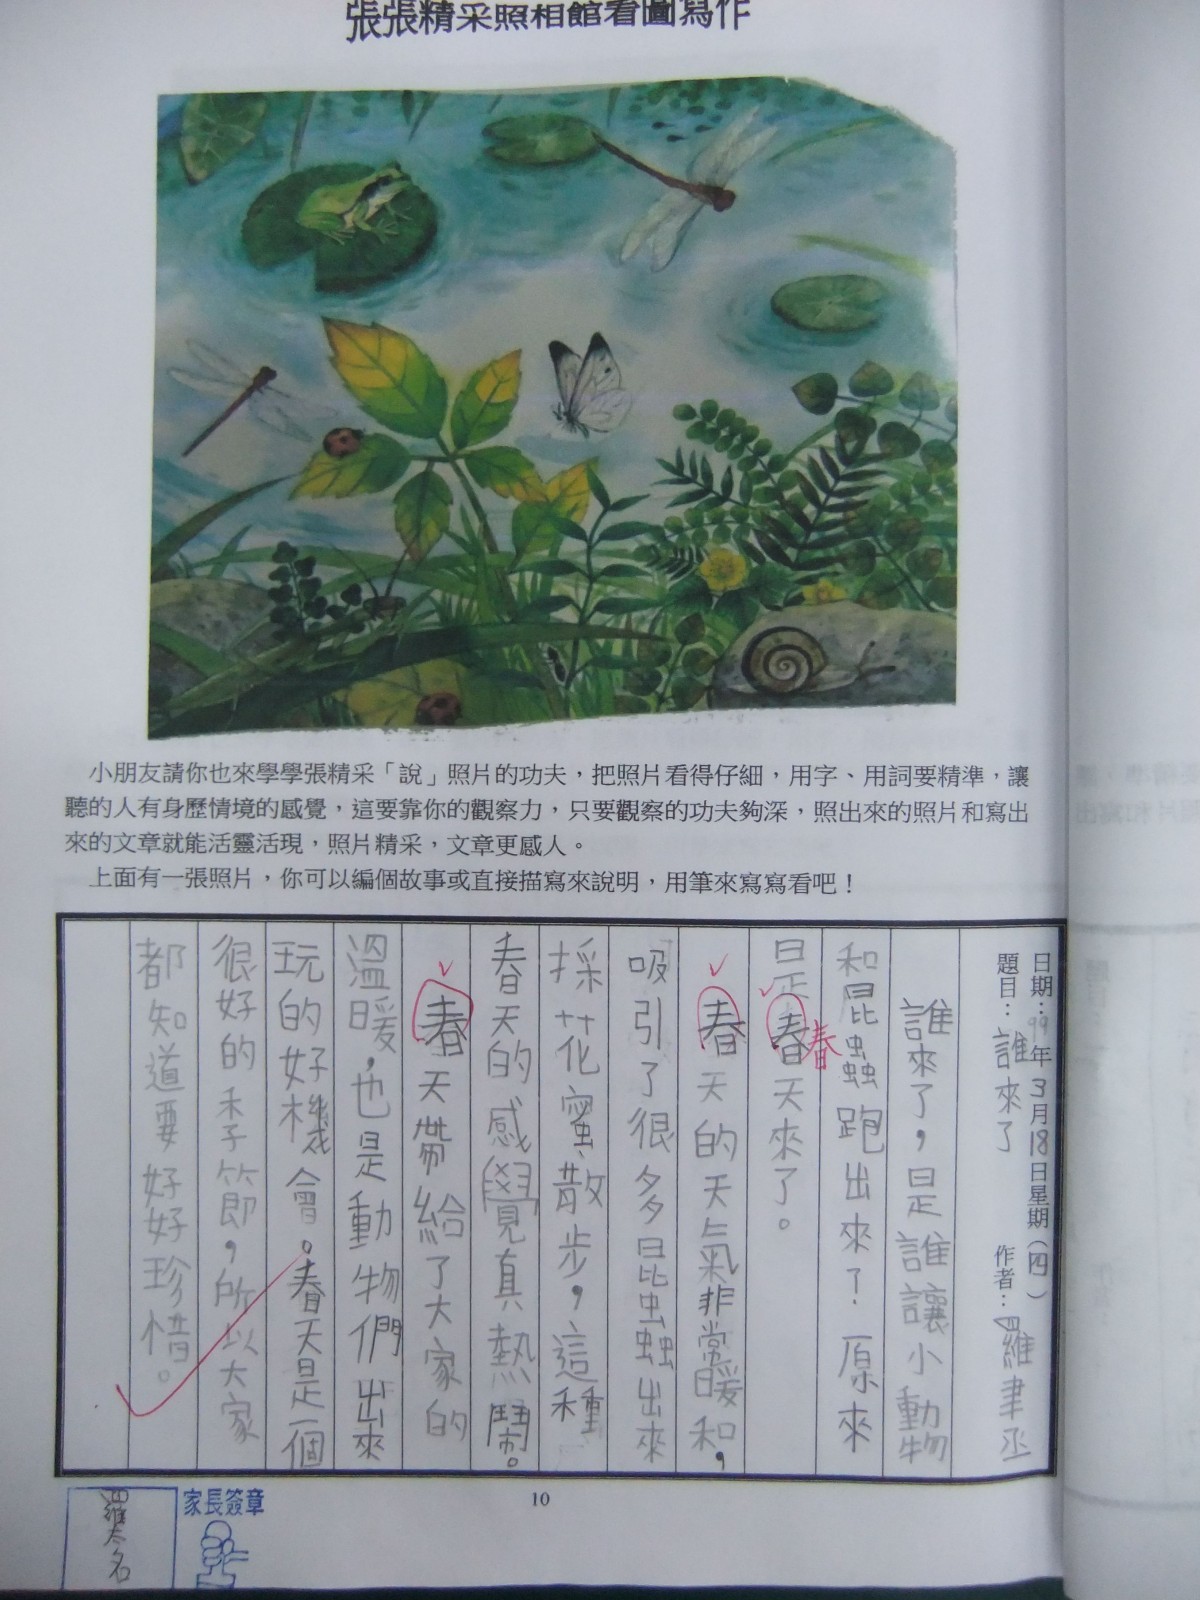 張張精采照相館看圖寫作
小朋友請你也來學學張精采「說」照片的功夫，把照片看得仔細，用字、用詞要精準，讓
聽的人有身歷情境的感覺，這要靠你的觀察力，只要觀察的功夫夠深，照出來的照片和寫出
來的文章就能活靈活現，照片精采，文章更感人。
上面有一張照片，你可以編個故事或直接描寫來說明，用筆來寫寫看吧！
日期：99年3月18日星期（四）
題目：誰來了 作者：羅聿丞
誰來了，是誰讓小動物
和昆蟲跑出來？原來
是春天來了。
春
春天的天氣非常暖和，
吸引了很多昆蟲出來
採花蜜、散步，這種
春天的感覺真熱鬧。
春天帶給了大家的
溫暖，也是動物們出來
玩的好機會。春天是一個
很好的季節，所以大家
都知道要好好珍惜。
家長簽章
10